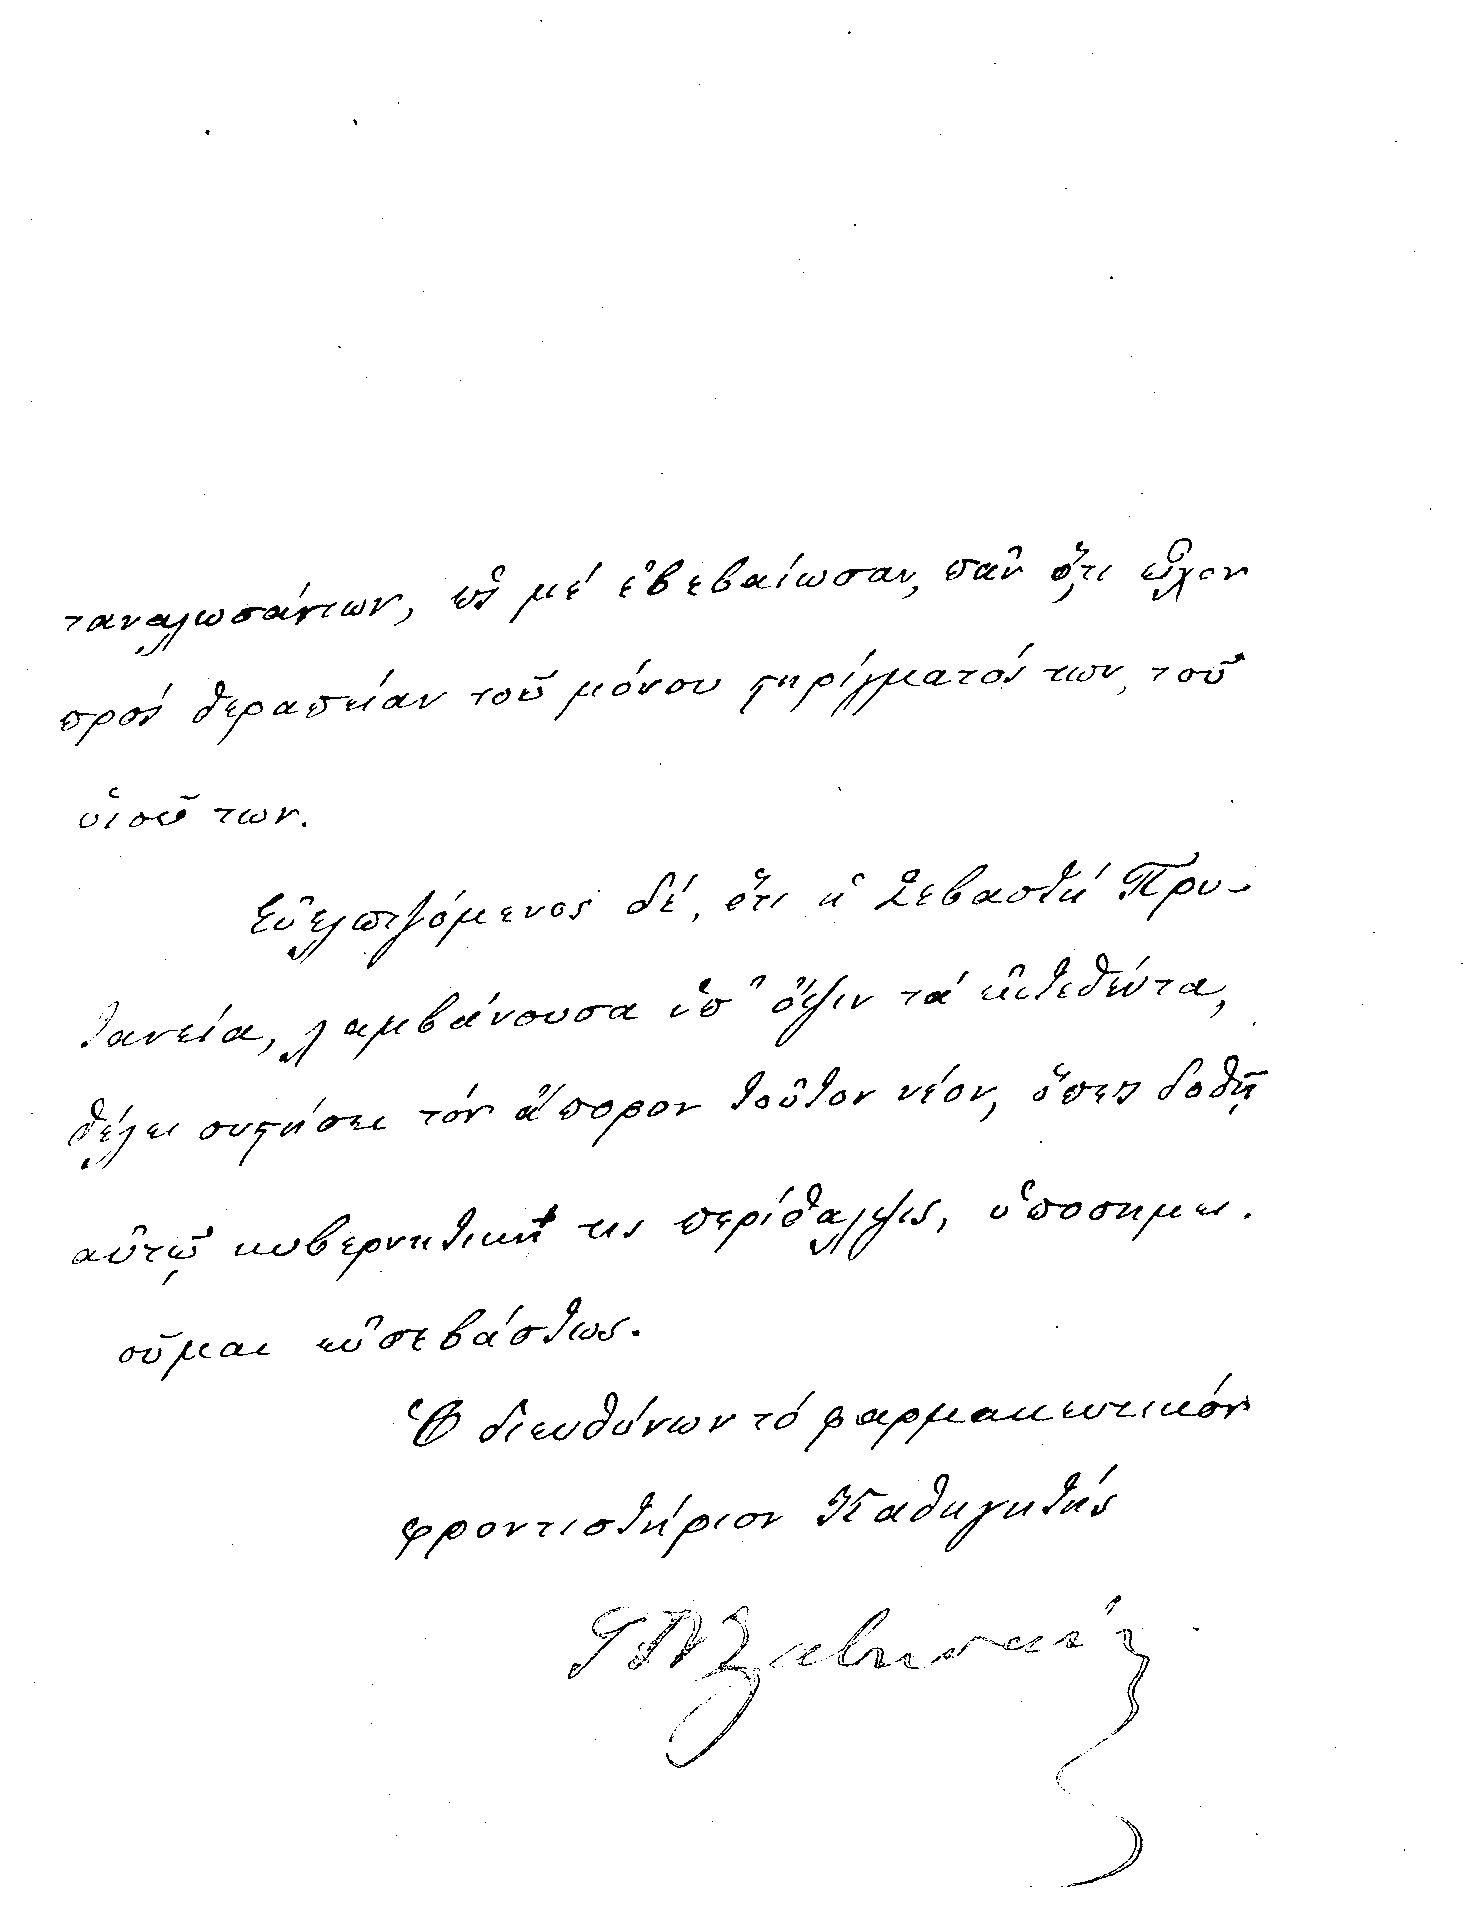 ταναλωσάντων, ὡς μέ ἐβεβαίωσαν, πᾶν ὅ,τι εἶχον
πρός θεραπείαν τοῦ μόνου στηρίγματός των, τοῦ
υἱοῦ των.
Εὐελπιζόμενος δέ, ὅτι ἡ Σεβαστή Πρυ-
τανεία, λαμβάνουσα ὑπ' ὄψιν τά ἐκτεθέντα,
θέλει συστήσει τόν ἄπορον τοῦτον νέον, ὅπως δοθῇ
αὐτῷ κυβερνητική τις περίθαλψις, ὑποσημει.
οῦμαι εὐσεβάστως.
Ὁ διευθύνων τό φαρμακευτικόν
φροντιστήριον Καθηγητής